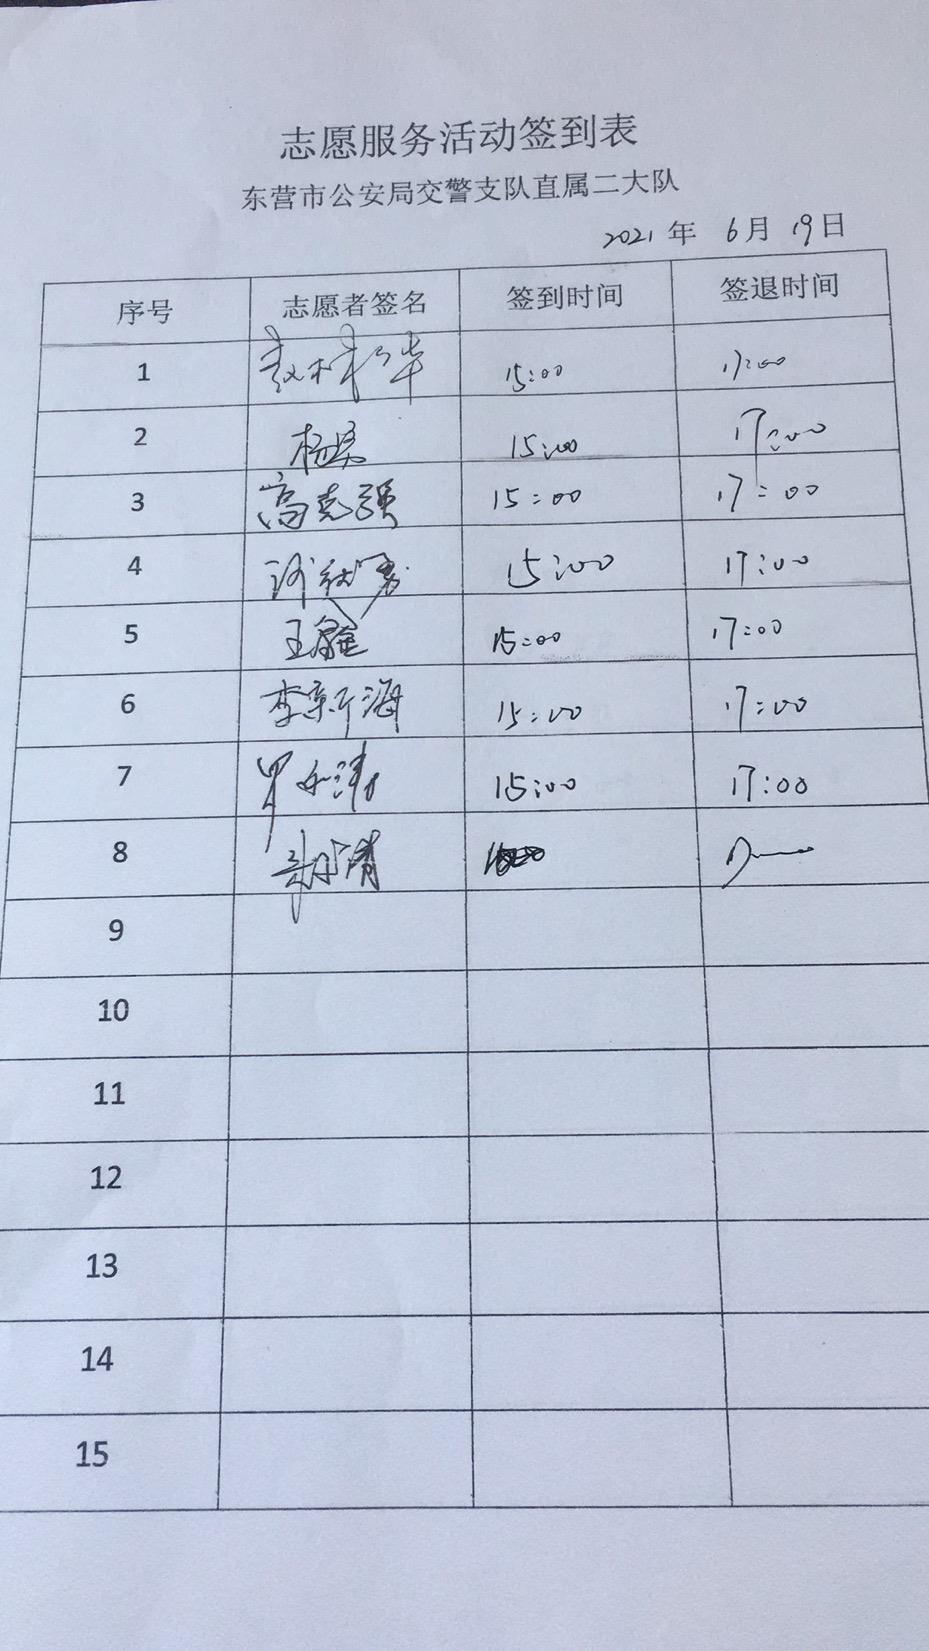 志愿服务活动签到表
东营市公安局交警支队直属二大队
2021年 6月 19日
序号 志愿者签名 签到时间 签退时间
1 15:00 17:00
2 杨 15:00 17:00
3 高克强 15:00 17:00
4 15:00 17:00
5 王鑫 15:00 17:00
6 李新海 15:00 17:00
7 15:00 17:00
8
9
10
11
12
13
14
15